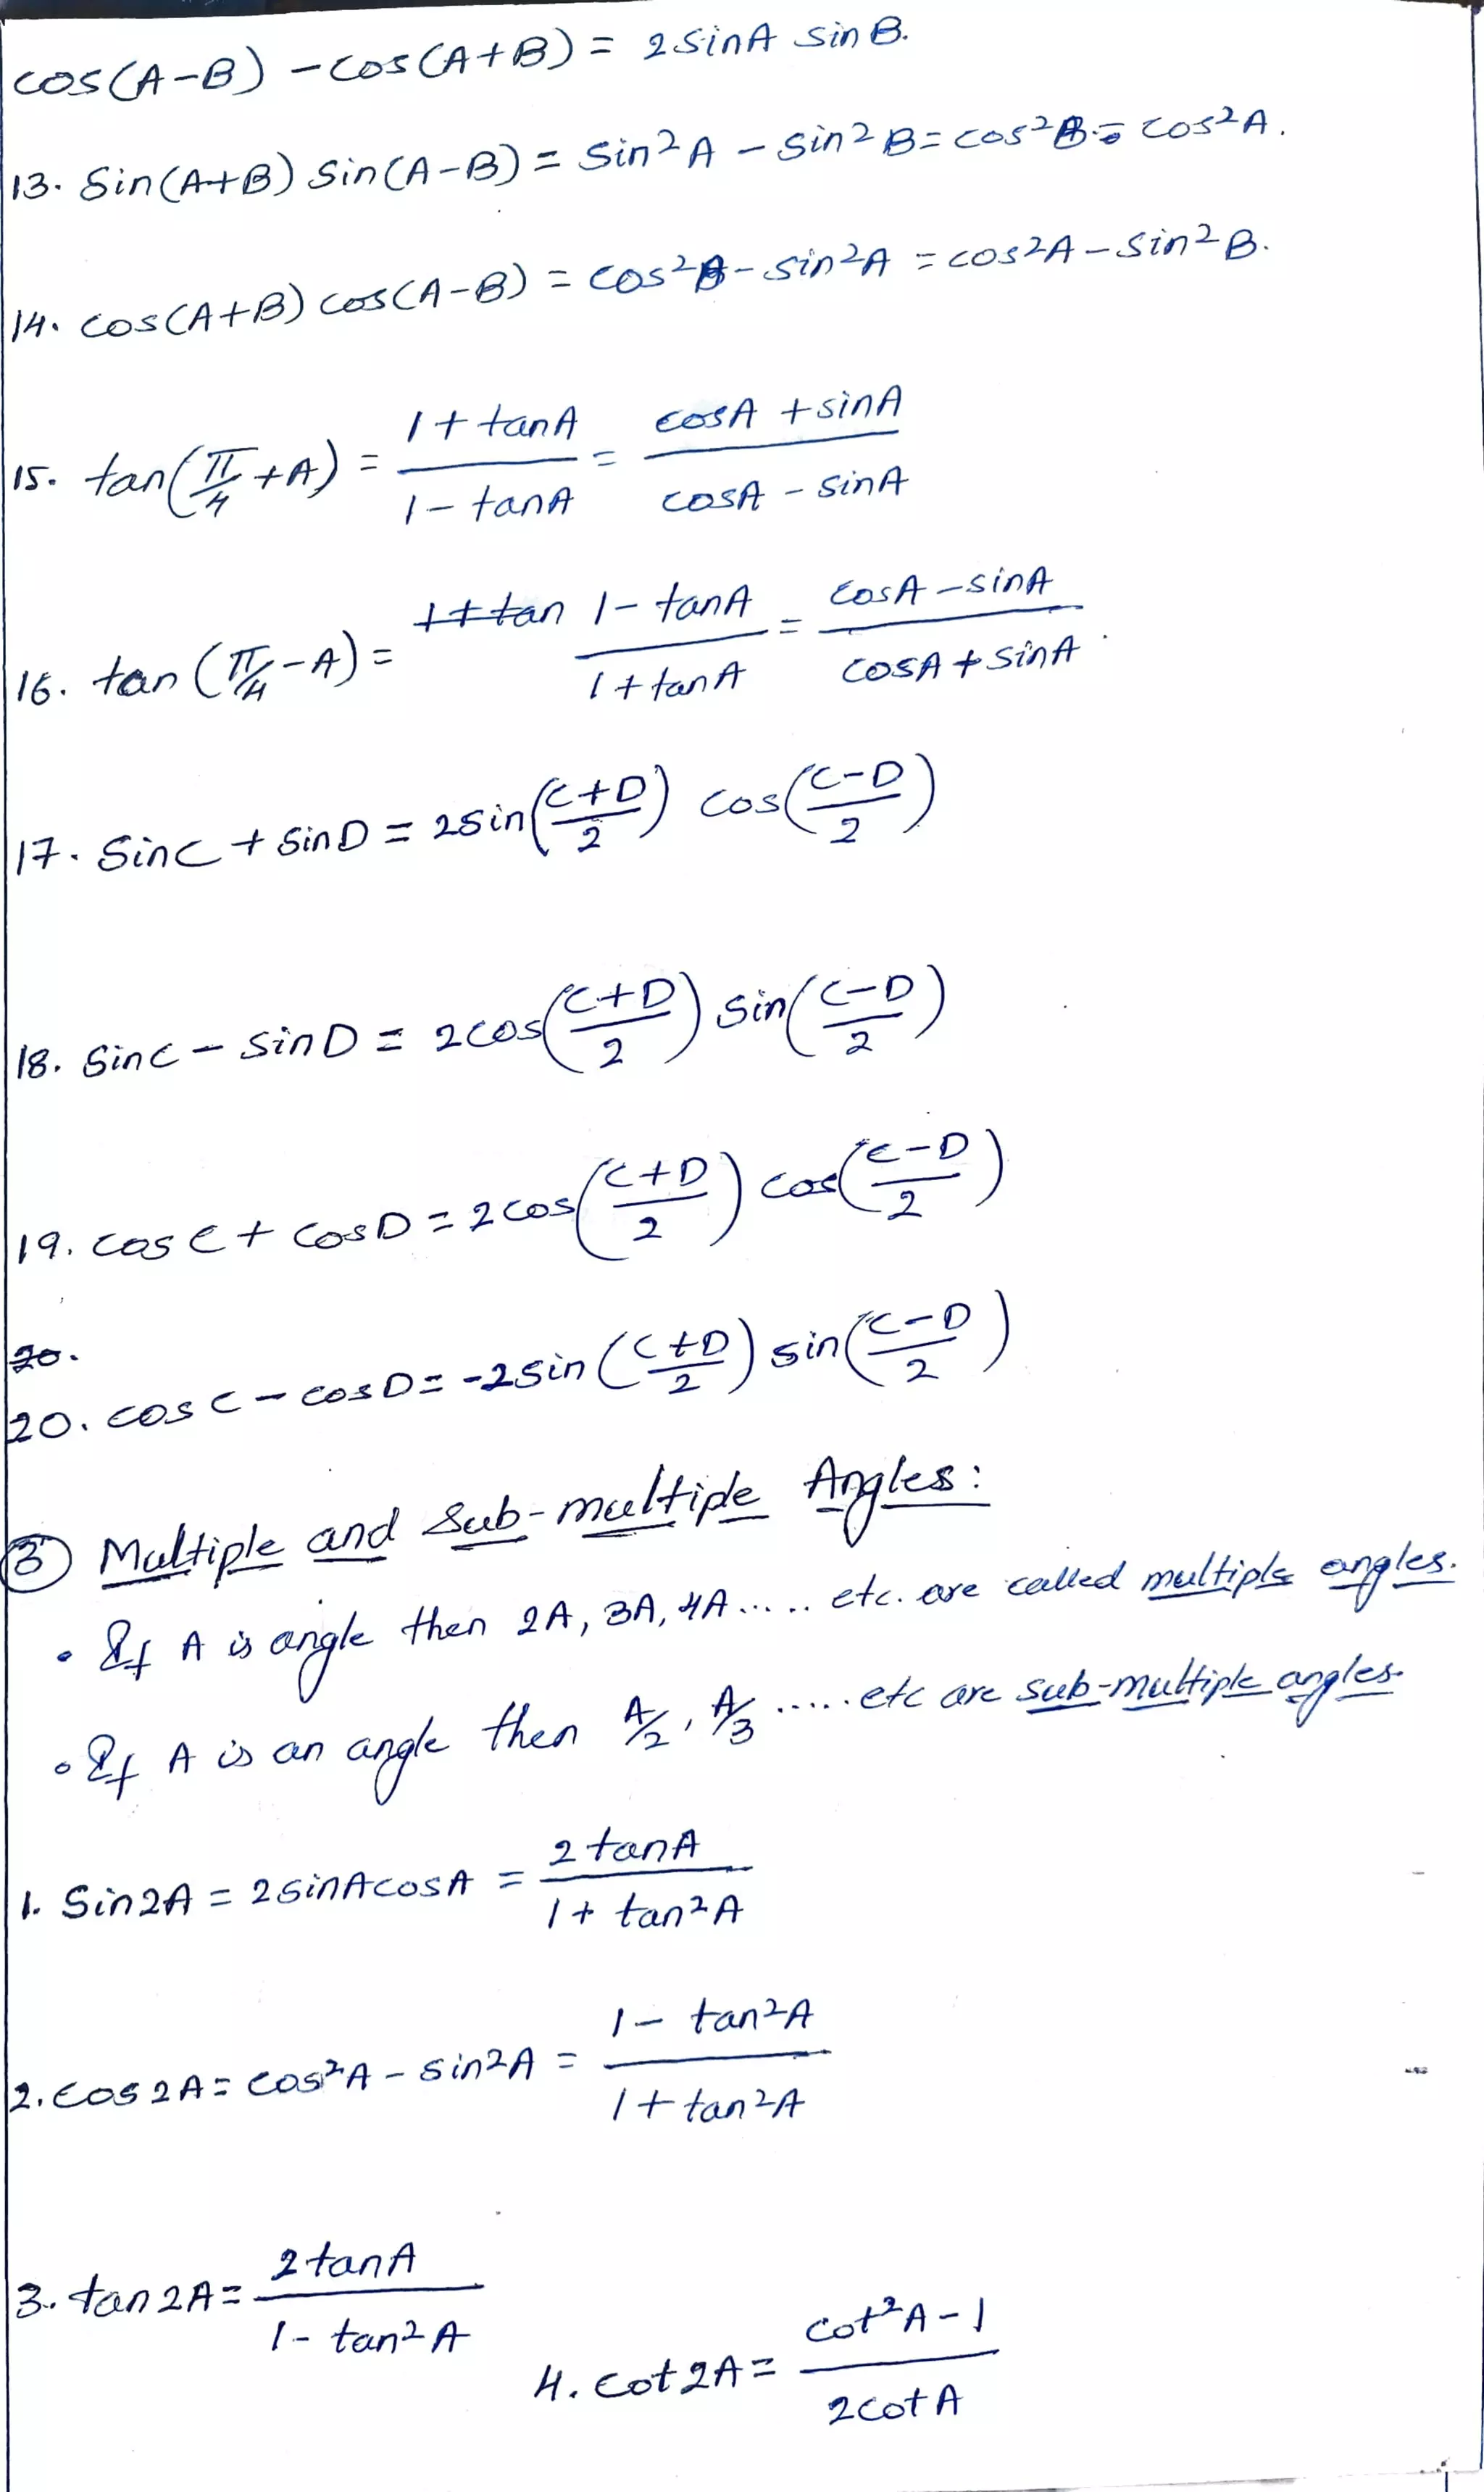 cos(A-B) - cos(A+B) = 2 sinA sinB.
13. Sin(A+B) Sin(A-B) = Sin²A - Sin²B = cos²B - cos²A.
14. cos(A+B) cos(A-B) = cos²B - sin²A = cos²A - sin²B.
15. tan(π/4 + A) = (1 + tanA)/(1 - tanA) = (cosA + sinA)/(cosA - sinA)
16. tan(π/4 - A) = (1 - tanA)/(1 + tanA) = (cosA - sinA)/(cosA + sinA).
17. SinC + SinD = 2Sin((C+D)/2) cos((C-D)/2)
18. SinC - SinD = 2cos((C+D)/2) Sin((C-D)/2)
19. cosC + cosD = 2cos((C+D)/2) cos((C-D)/2)
20.
20. cosC - cosD = -2sin((C+D)/2) sin((C-D)/2)
③ Multiple and Sub-multiple Angles:
• If A is angle then 2A, 3A, 4A..... etc. are called multiple angles.
• If A is an angle then A/2, A/3 ..... etc are sub-multiple angles.
1. Sin2A = 2sinAcosA = 2tanA/(1 + tan²A)
2. cos2A = cos²A - sin²A = (1 - tan²A)/(1 + tan²A)
3. tan2A = 2tanA/(1 - tan²A)
4. cot2A = (cot²A - 1)/(2cotA)